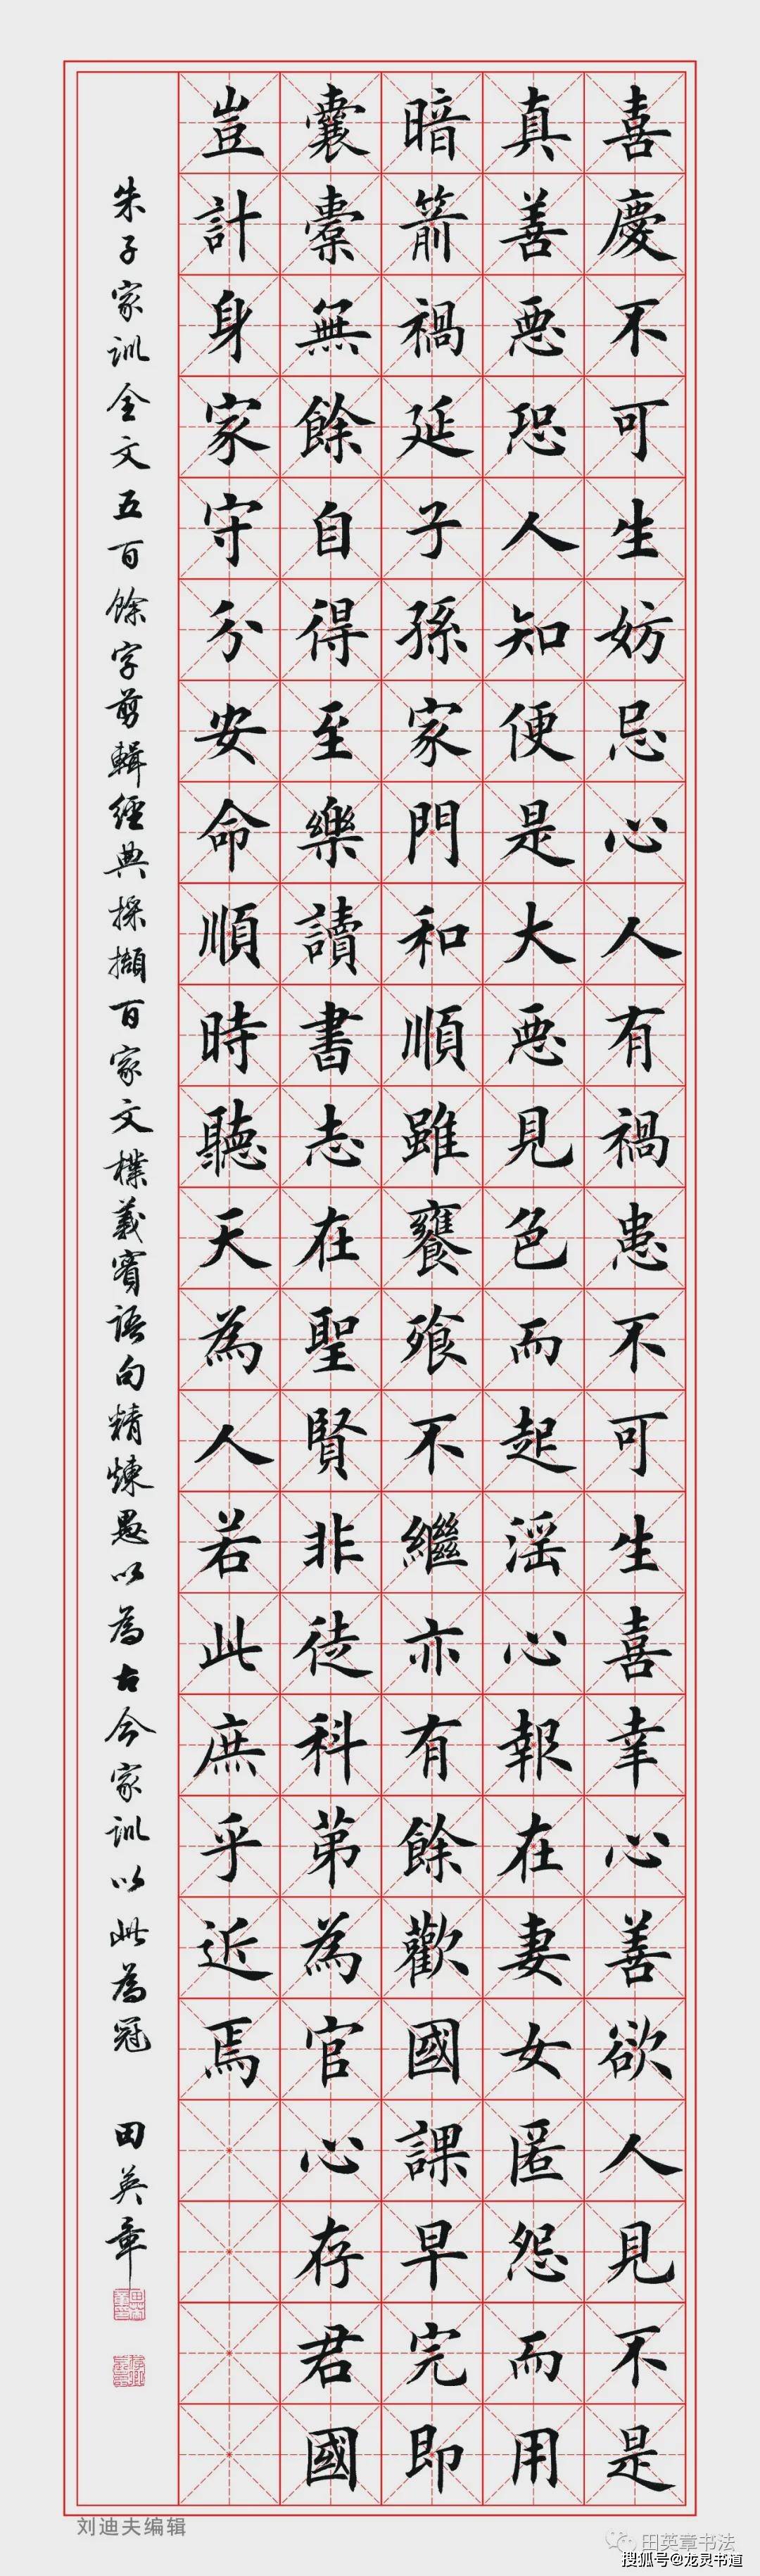 喜慶不可生妨忌心人有禍患不可生喜幸心善欲人見不是
真善惡恐人知便是大惡見色而起淫心報在妻女匿怨而用
暗箭禍延子孫家門和順雖饔飧不繼亦有餘歡國課早完即
囊橐無餘自得至樂讀書志在聖賢非徒科第為官心存君國
豈計身家守分安命順時聽天為人若此庶乎近焉
朱子家训全文五百餘字剪輯經典採擷百家文樸義賓语句精煉愚以為古今家训以此為冠
田英章
刘迪夫编辑
田英章书法
搜狐号@龙灵书道